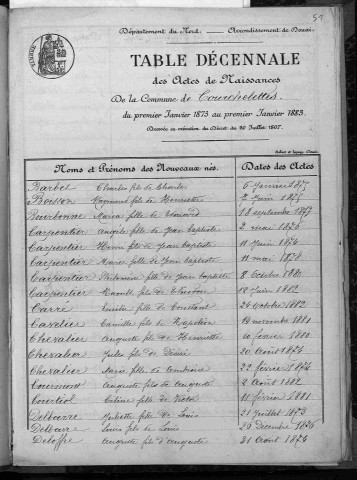 51
Département du Nord. — Arrondissement de Douai.
TABLE DÉCENNALE
des Actes de Naissances
De la Commune de Courchelettes.
du premier Janvier 1873 au premier Janvier 1883.
Dressée en exécution du Décret du 20 Juillet 1807.
Noms et Prénoms des Nouveaux nés. Dates des Actes
Barbet Charles fils de Charles 6 Janvier 1875
Boisson Raymond fils de Henriette 7 Juin 1875
Bourbonne Maria fille de 18 septembre 1873
Carpentier fils de Jean baptiste 2 mai 1876
Carpentier Henri fils de Jean baptiste 11 Juin 1874
Carpentier Marie fille de Jean baptiste 11 mai 1878
Carpentier fille de Jean baptiste 8 Octobre 1880
Carpentier fille de 12 Juin 1882
Carré Emile fils de Constant 24 octobre 1882
Cavelier Camille fils de Napoléon 19 novembre 1881
Chevalier Auguste fils de Henriette 10 février 1880
Chevalier Jules fils de Désiré 20 Août 1874
Chevalier Marie fille de Ambroise 22 février 1874
Courmont Auguste fils de Auguste 2 Août 1882
Courtiol fille de Victor 11 février 1881
Delbarre Juliette fille de Louis 21 Juillet 1873
Delbarre Louis fils de Louis 26 Décembre 1876
Deloffre Auguste fils d'Auguste 31 Août 1874